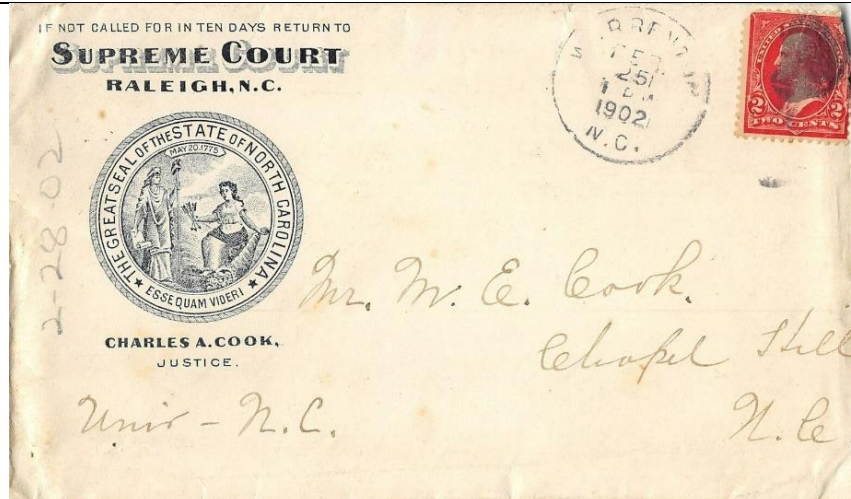 IF NOT CALLED FOR IN TEN DAYS RETURN TO
SUPREME COURT
RALEIGH, N.C.
THE GREAT SEAL OF THE STATE OF NORTH CAROLINA
MAY 20.1775
★ ESSE QUAM VIDERI ★
CHARLES A. COOK,
JUSTICE.
2-28-02
FEB
25
1902
N.C.
2 2
TWO CENTS
Mr. W. E. Cook.
Chapel Hill
N.C
Univ - N.C.